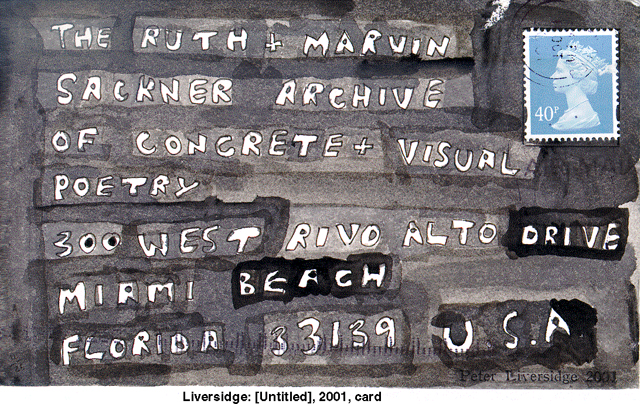 THE RUTH + MARVIN
SACKNER ARCHIVE
OF CONCRETE + VISUAL
POETRY
300 WEST RIVO ALTO DRIVE
MIAMI BEACH
FLORIDA 33139 U.S.A
40P
Peter Liversidge 2001
Liversidge: [Untitled], 2001, card